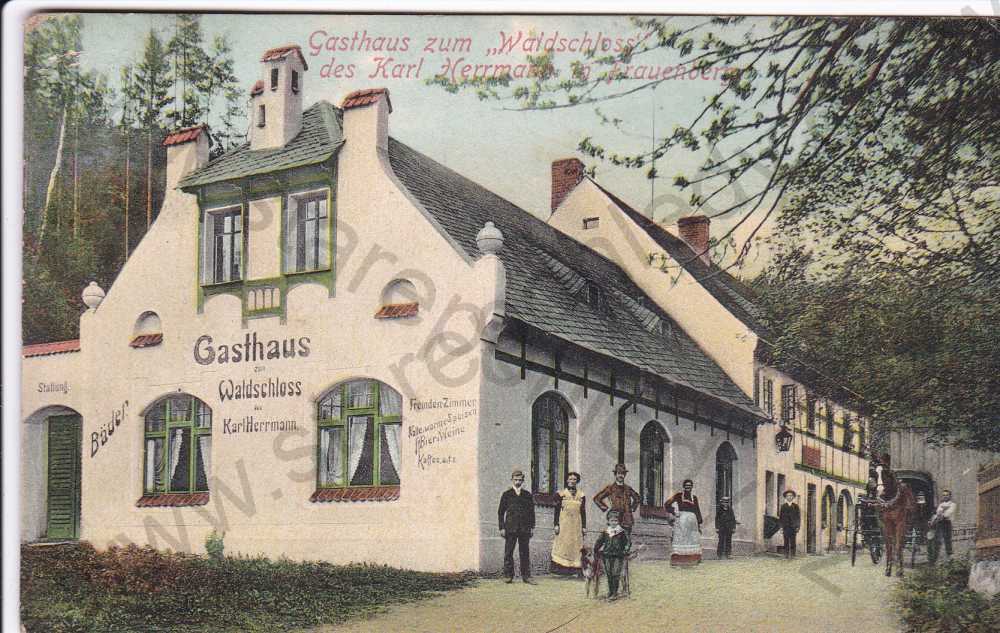 Gasthaus zum „Waldschloss"
des Karl Herrmann in Frauenberg
Gasthaus
zum
Waldschloss
des
Karl Herrmann.
Stallung.
Bäder
Fremden-Zimmer
Kalte u. warme Speisen
Bier u. Weine
Kaffee, etc.